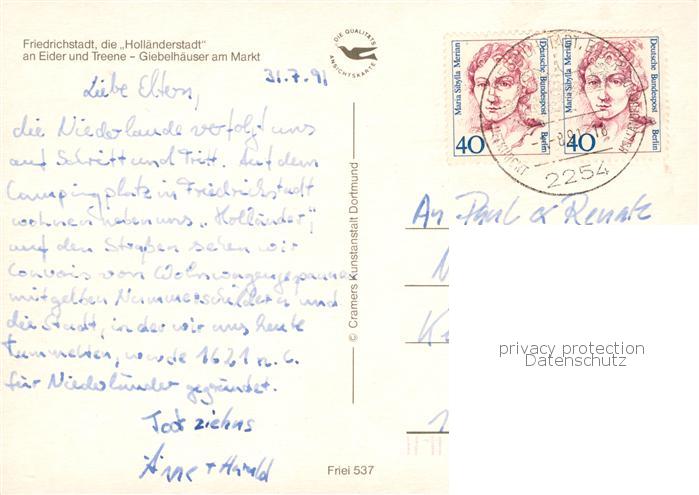 Friedrichstadt, die „Holländerstadt"
an Eider und Treene – Giebelhäuser am Markt
DIE QUALITÄTS
ANSICHTSKARTE
31.7.91
Liebe Eltern,
die Niederlande verfolgt uns
auf Schritt und Tritt. Auf dem
Campingplatz in Friedrichstadt
wohnen neben uns „Holländer",
auf den Straßen sehen wir
Convois von Wohnwagengespannen
mit gelben Nummerschildern und
die Stadt, in der wir uns heute
tummelten, wurde 1621 n. C.
für Niederländer gegründet.
Anne + Harald
© Cramers Kunstanstalt Dortmund
Friei 537
Maria Sibylla Merian
Deutsche Bundespost Berlin
40
Maria Sibylla Merian
Deutsche Bundespost Berlin
40
2254
An Paul & Renate
privacy protection
Datenschutz